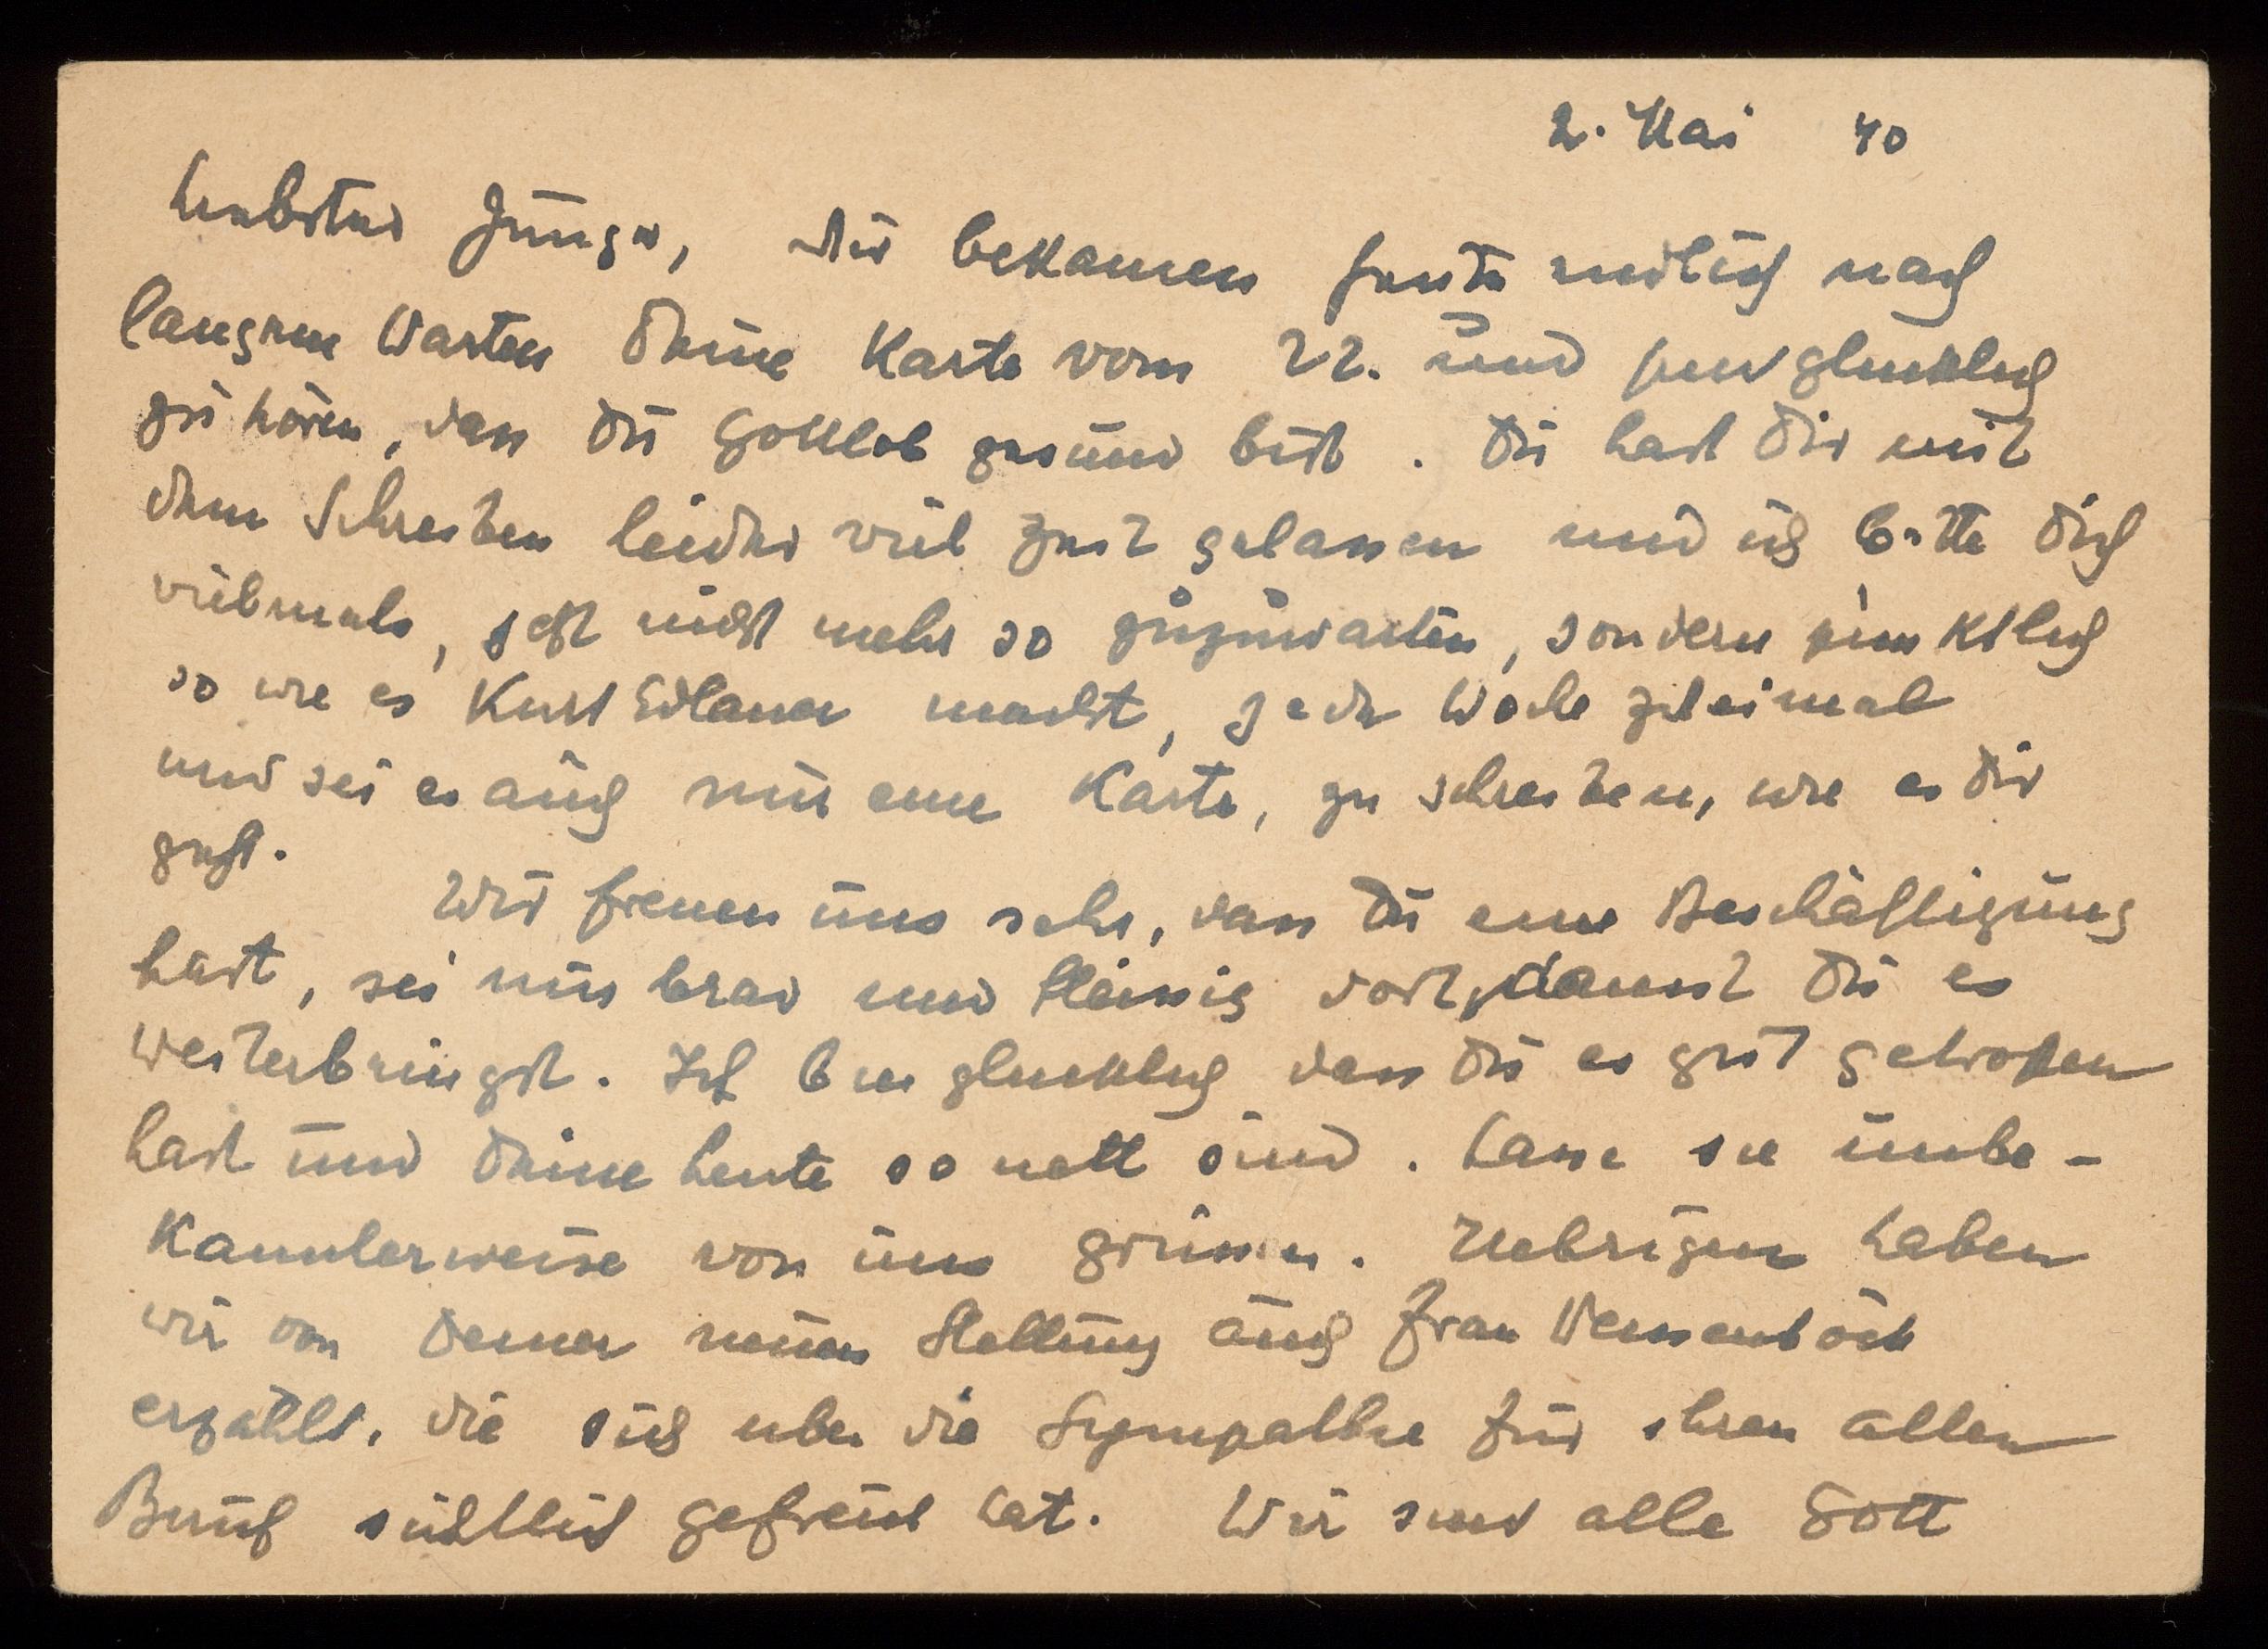 2. Mai 40
Liebster Junge, Wir bekamen heute endlich nach
langem Warten Deine Karte vom 22. und sind glücklich
zu hören, dass Du Gottlob gesund bist. Du hast Dir mit
dem Schreiben leider viel Zeit gelassen und ich bitte Dich
vielmals, jetzt nicht mehr so zuzuwarten, sondern pünktlich
so wie es Kurt macht, jede Woche zweimal
und sei es auch nur eine Karte, zu schreiben, wie es Dir
geht.
Wir freuen uns sehr, dass Du eine Beschäftigung
hast, sei nur brav und fleissig dort, damit Du es
weiterbringst. Ich bin glücklich dass Du es gut getroffen
hast und Deine Leute so nett sind. Lasse sie unbe-
kannterweise von uns grüssen. Uebrigens haben
wir von Deiner neuen Stellung auch Frau
erzählt, die sich über die Sympathie für ihren alten
Beruf sichtlich gefreut hat. Wir sind alle Gott